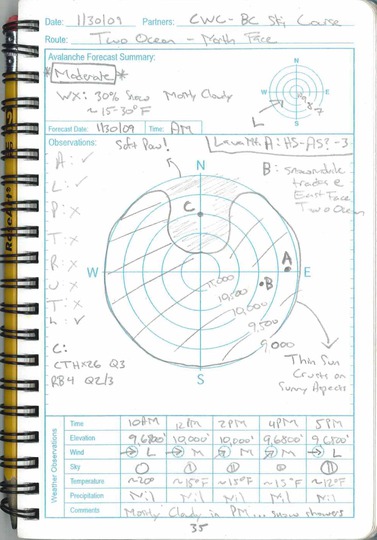 Date: 1/30/09 Partners: CWC - BC Ski Course
Route: Two Ocean - North Face
Avalanche Forecast Summary:
* Moderate *
WX: 30% Snow Mostly Cloudy
~15-30°F
N
W E
S
L
Forecast Date: 1/30/09 Time: AM
Observations: Soft Pow!
A: ✓
L: ✓
P: x
T: x
R: x
U: x
T: x
H: ✓
B: snowmobile
East Face
Two Ocean
N
C
W E
A
B
11,000
10,500
10,000
9,500
9,000
S
Thin Sun
Crusts on
Sunny Aspects
C:
CTH x26 Q3
RB4 Q2/3
Weather Observations
Time 10AM 12PM 2PM 4PM 5PM
Elevation 9,6800' 10,000' 10,000' 9,6800'
Wind L M M M L
Sky
Temperature ~20° ~15°F ~15°F ~15°F ~12°F
Precipitation Nil Nil Nil Nil Nil
Comments Mostly Cloudy in PM... snow showers
35